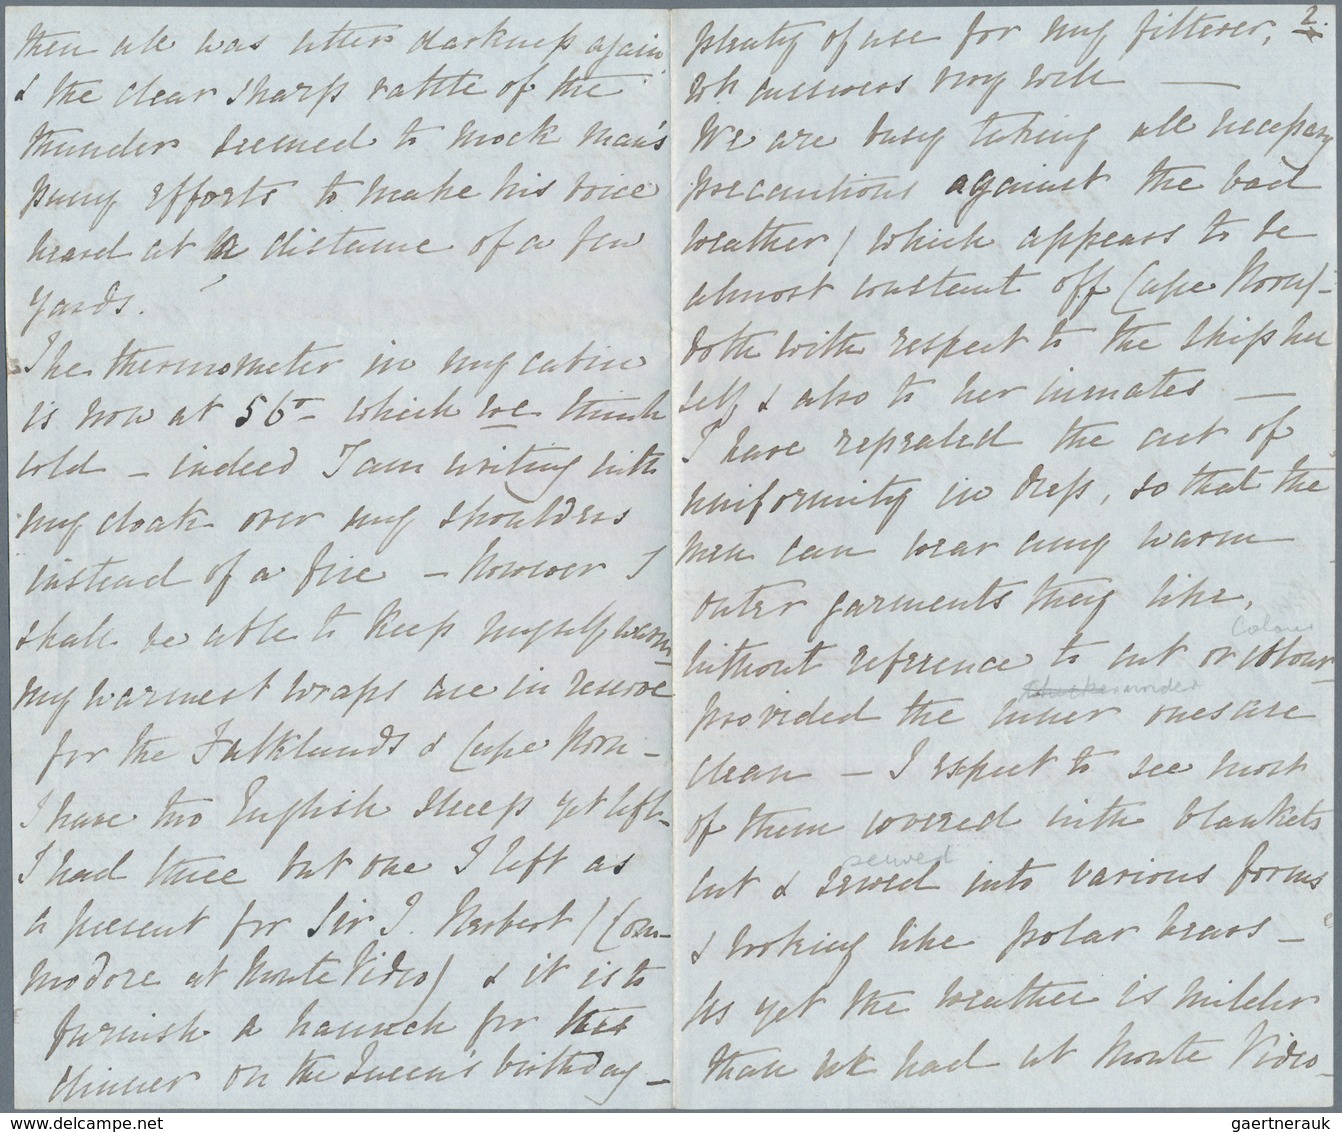 then all was utter darkness again
& the clear sharp rattle of the
thunder seemed to mock man's
puny efforts to make his voice
heard at a distance of a few
yards.
The thermometer in my cabin
is now at 56° which we think
cold – indeed I am writing with
my cloak over my shoulders
instead of a fire – however I
shall be able to keep myself warm
my warmest wraps are in reserve
for the Falklands & Cape Horn –
I have two English sheep yet left –
I had three but one I left as
a present for Sir T. Herbert / Com-
modore at Monte Video) & it is to
furnish a haunch for his
dinner on the Queen's birthday –
2.
plenty of use for my filterer,
wh answers very well —
We are busy taking all necessary
precautions against the bad
weather / which appears to be
almost constant off Cape Horn) –
both with respect to the ship her
self, & also to her inmates —
I have repealed the act of
uniformity in dress, so that the
men can wear any warm
outer garments they like,
colour
without reference to cut or colour
under
provided the inner ones are
clean – I expect to see most
of them covered with blankets
sewed
cut & sewed into various forms
& looking like polar bears –
As yet the weather is milder
than we had at Monte Video –
www.delcampe.net
gaertnerauk